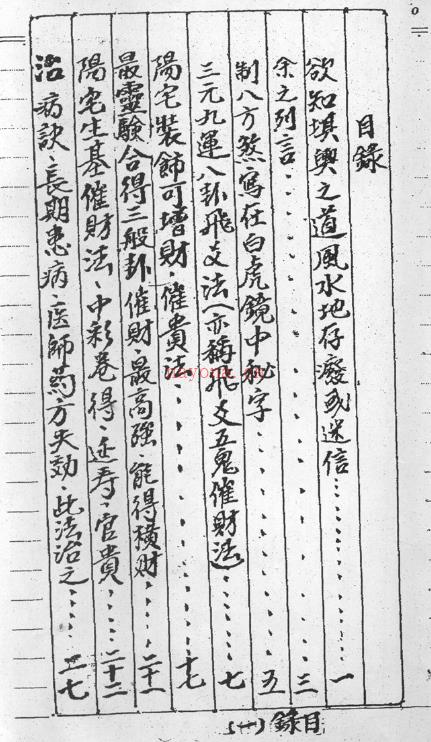 目錄
欲知堪輿之道風水地存廢或迷信…………一
余之列言…………三
制八方煞寫在白虎鏡中秘字…………五
三元九運八卦飛爻法(亦稱飛爻五鬼催財法)…………七
陽宅裝飾可增財、催貴法…………十七
最靈驗合得三般卦催財、最高強、能得橫財……二十一
陽宅生基催財法、中彩卷得、延壽、官貴……二十二
治病訣、長期患病、医師药方失効、此法治之……二七
目錄(一)